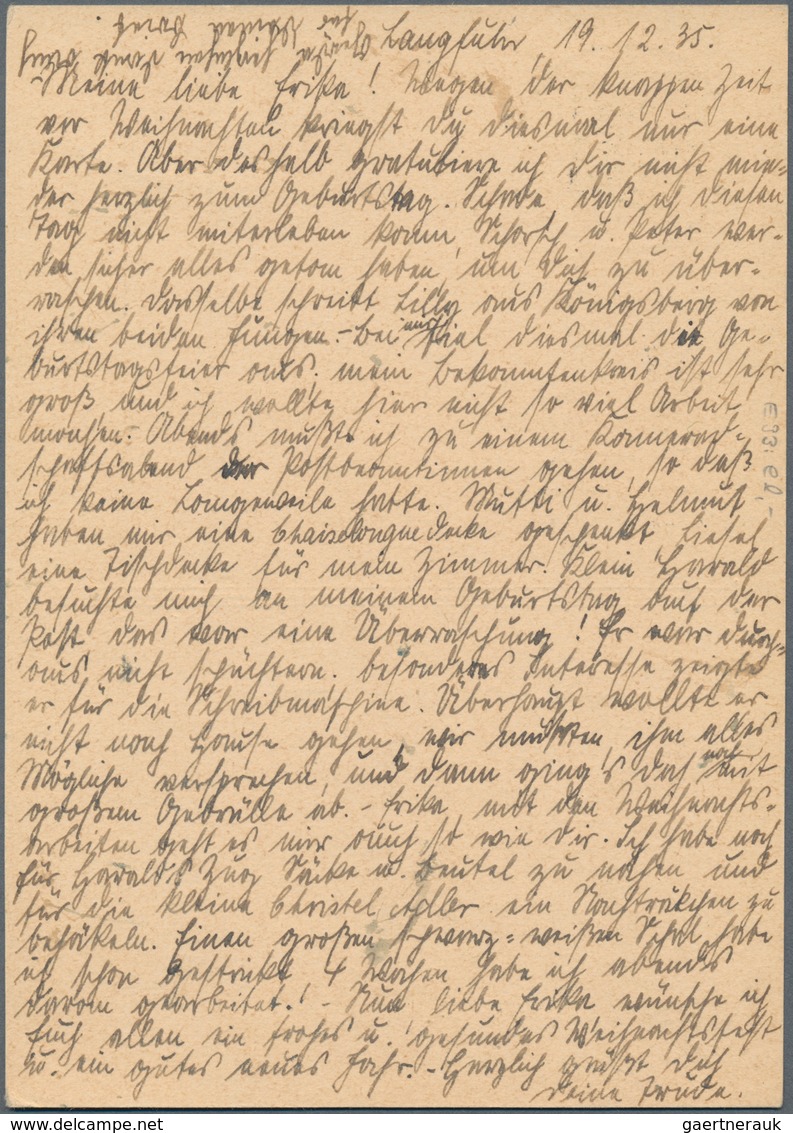 Langfuhr, 19.12.35.
Meine liebe Erika! Wegen der knappen Zeit
vor Weihnachten kriegst du diesmal nur eine
Karte. Aber deshalb gratuliere ich dir nicht min-
der herzlich zum Geburtstag. Schade, daß ich diesen
Tag nicht miterleben kann, Schorsch u. Peter wer-
den sicher alles getan haben, um dich zu über-
raschen. Dasselbe schreibt Lilly aus Königsberg von
ihren beiden Jungen. - Bei mir fiel diesmal die Ge-
burtstagsfeier aus, mein Bekanntenkreis ist sehr
groß und ich wollte hier nicht so viel Arbeit
machen. Abends mußte ich zu einem Kamerad-
schaftsabend der Postbeamtinnen gehen, so daß
ich keine Langeweile hatte. Mutti u. Helmut
haben mir eine Chaiselonguedecke geschenkt, Liesel
eine Tischdecke für mein Zimmer. Klein Harald
besuchte mich an meinem Geburtstag auf der
Post, das war eine Überraschung! Er war durch-
aus nicht schüchtern. Besonderes Interesse zeigte
er für die Schreibmaschine. Überhaupt wollte er
nicht nach Hause gehen, wir mußten ihm alles
Mögliche versprechen, und dann ging's doch noch mit
großem Gebrülle ab. - Erika, mit den Weihnachts-
arbeiten geht es mir auch so wie dir. Ich habe noch
für Haralds Zug Säcke u. Beutel zu nähen und
für die kleine Christel ein zu
behäkeln. Einen großen schwarz-weißen Schal habe
ich schon gestrickt, 4 Wochen habe ich abends
daran gearbeitet! - Nun liebe Erika wünsche ich
Euch allen ein frohes u. gesundes Weihnachtsfest
u. ein gutes neues Jahr. - Herzlich grüßt dich
deine Trude.
gaertnerauk